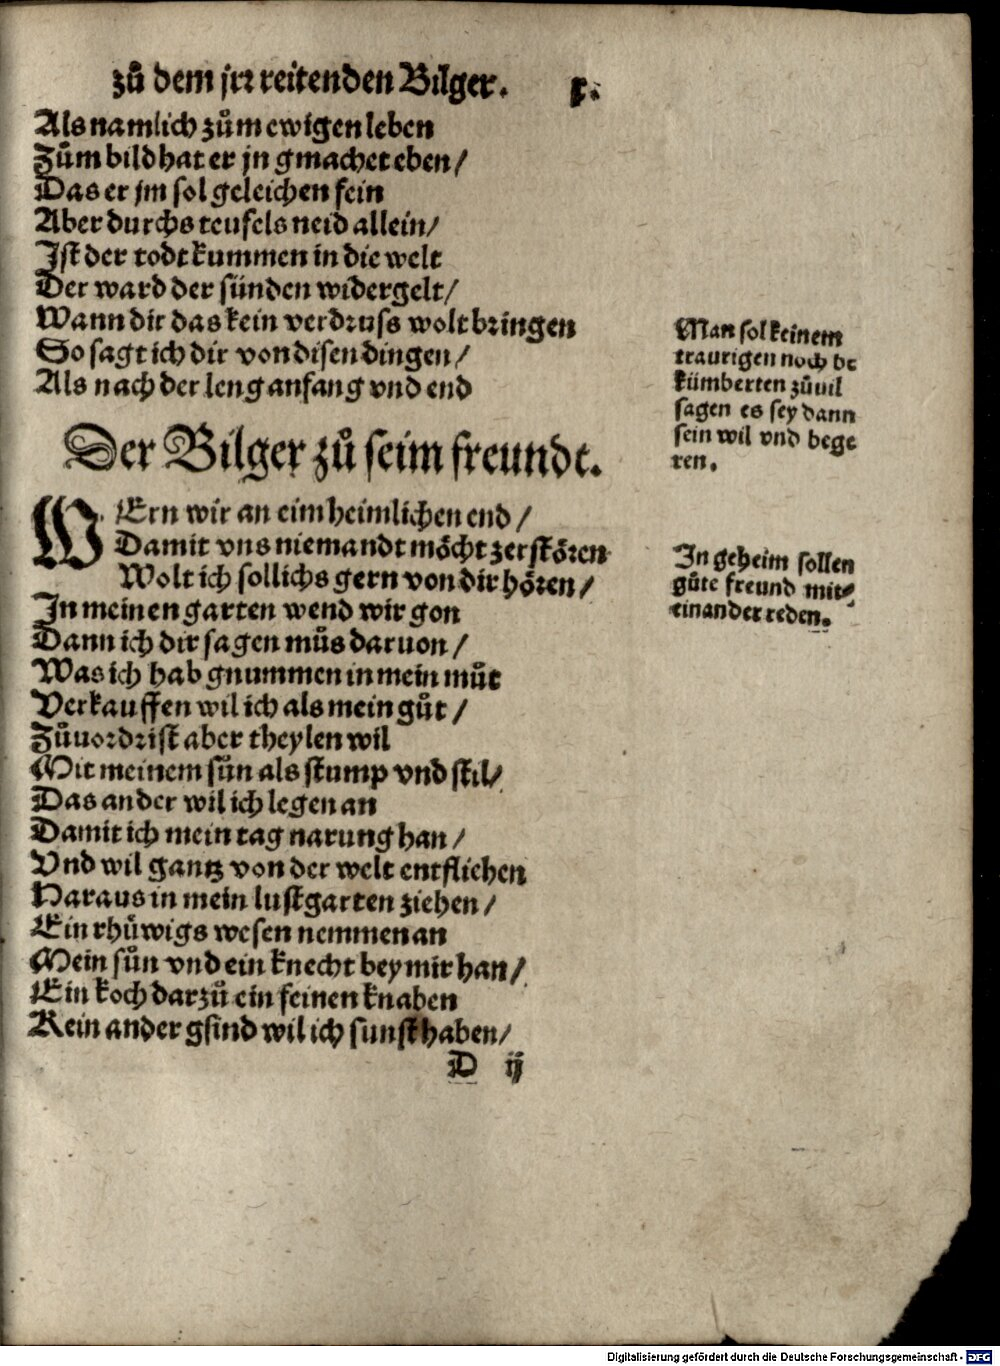 zů dem irr reitenden Bilger. x.
Als namlich zům ewigen leben
Zům bild hat er jn gmachet eben/
Das er jm sol geleichen fein
Aber durchs teufels neid allein/
Ist der todt kummen in die welt
Der ward der sünden widergelt/
Wann dir das kein verdruss wolt bringen
So sagt ich dir von disen dingen/
Als nach der leng anfang vnd end
Man sol keinem
traurigen noch be
kümberten zůuil
sagen es sey dann
sein wil vnd bege
ren.
Der Bilger zů seim freundt.
WErn wir an eim heimlichen end/
Damit vns niemandt möcht zerstören
Wolt ich sollichs gern von dir hören/
In meinen garten wend wir gon
Dann ich dir sagen můs daruon/
Was ich hab gnummen in mein můt
Verkauffen wil ich als mein gůt/
Zůuordrist aber theylen wil
Mit meinem sůn als stump vnd stil/
Das ander wil ich legen an
Damit ich mein tag narung han/
Vnd wil gantz von der welt entfliehen
Haraus in mein lustgarten ziehen/
Ein rhůwigs wesen nemmen an
Mein sůn vnd ein knecht bey mir han/
Ein koch darzů ein feinen knaben
Kein ander gsind wil ich sunst haben/
In geheim sollen
gůte freund mit⸗
einander reden.
D ij
Digitalisierung gefördert durch die Deutsche Forschungsgemeinschaft - DFG